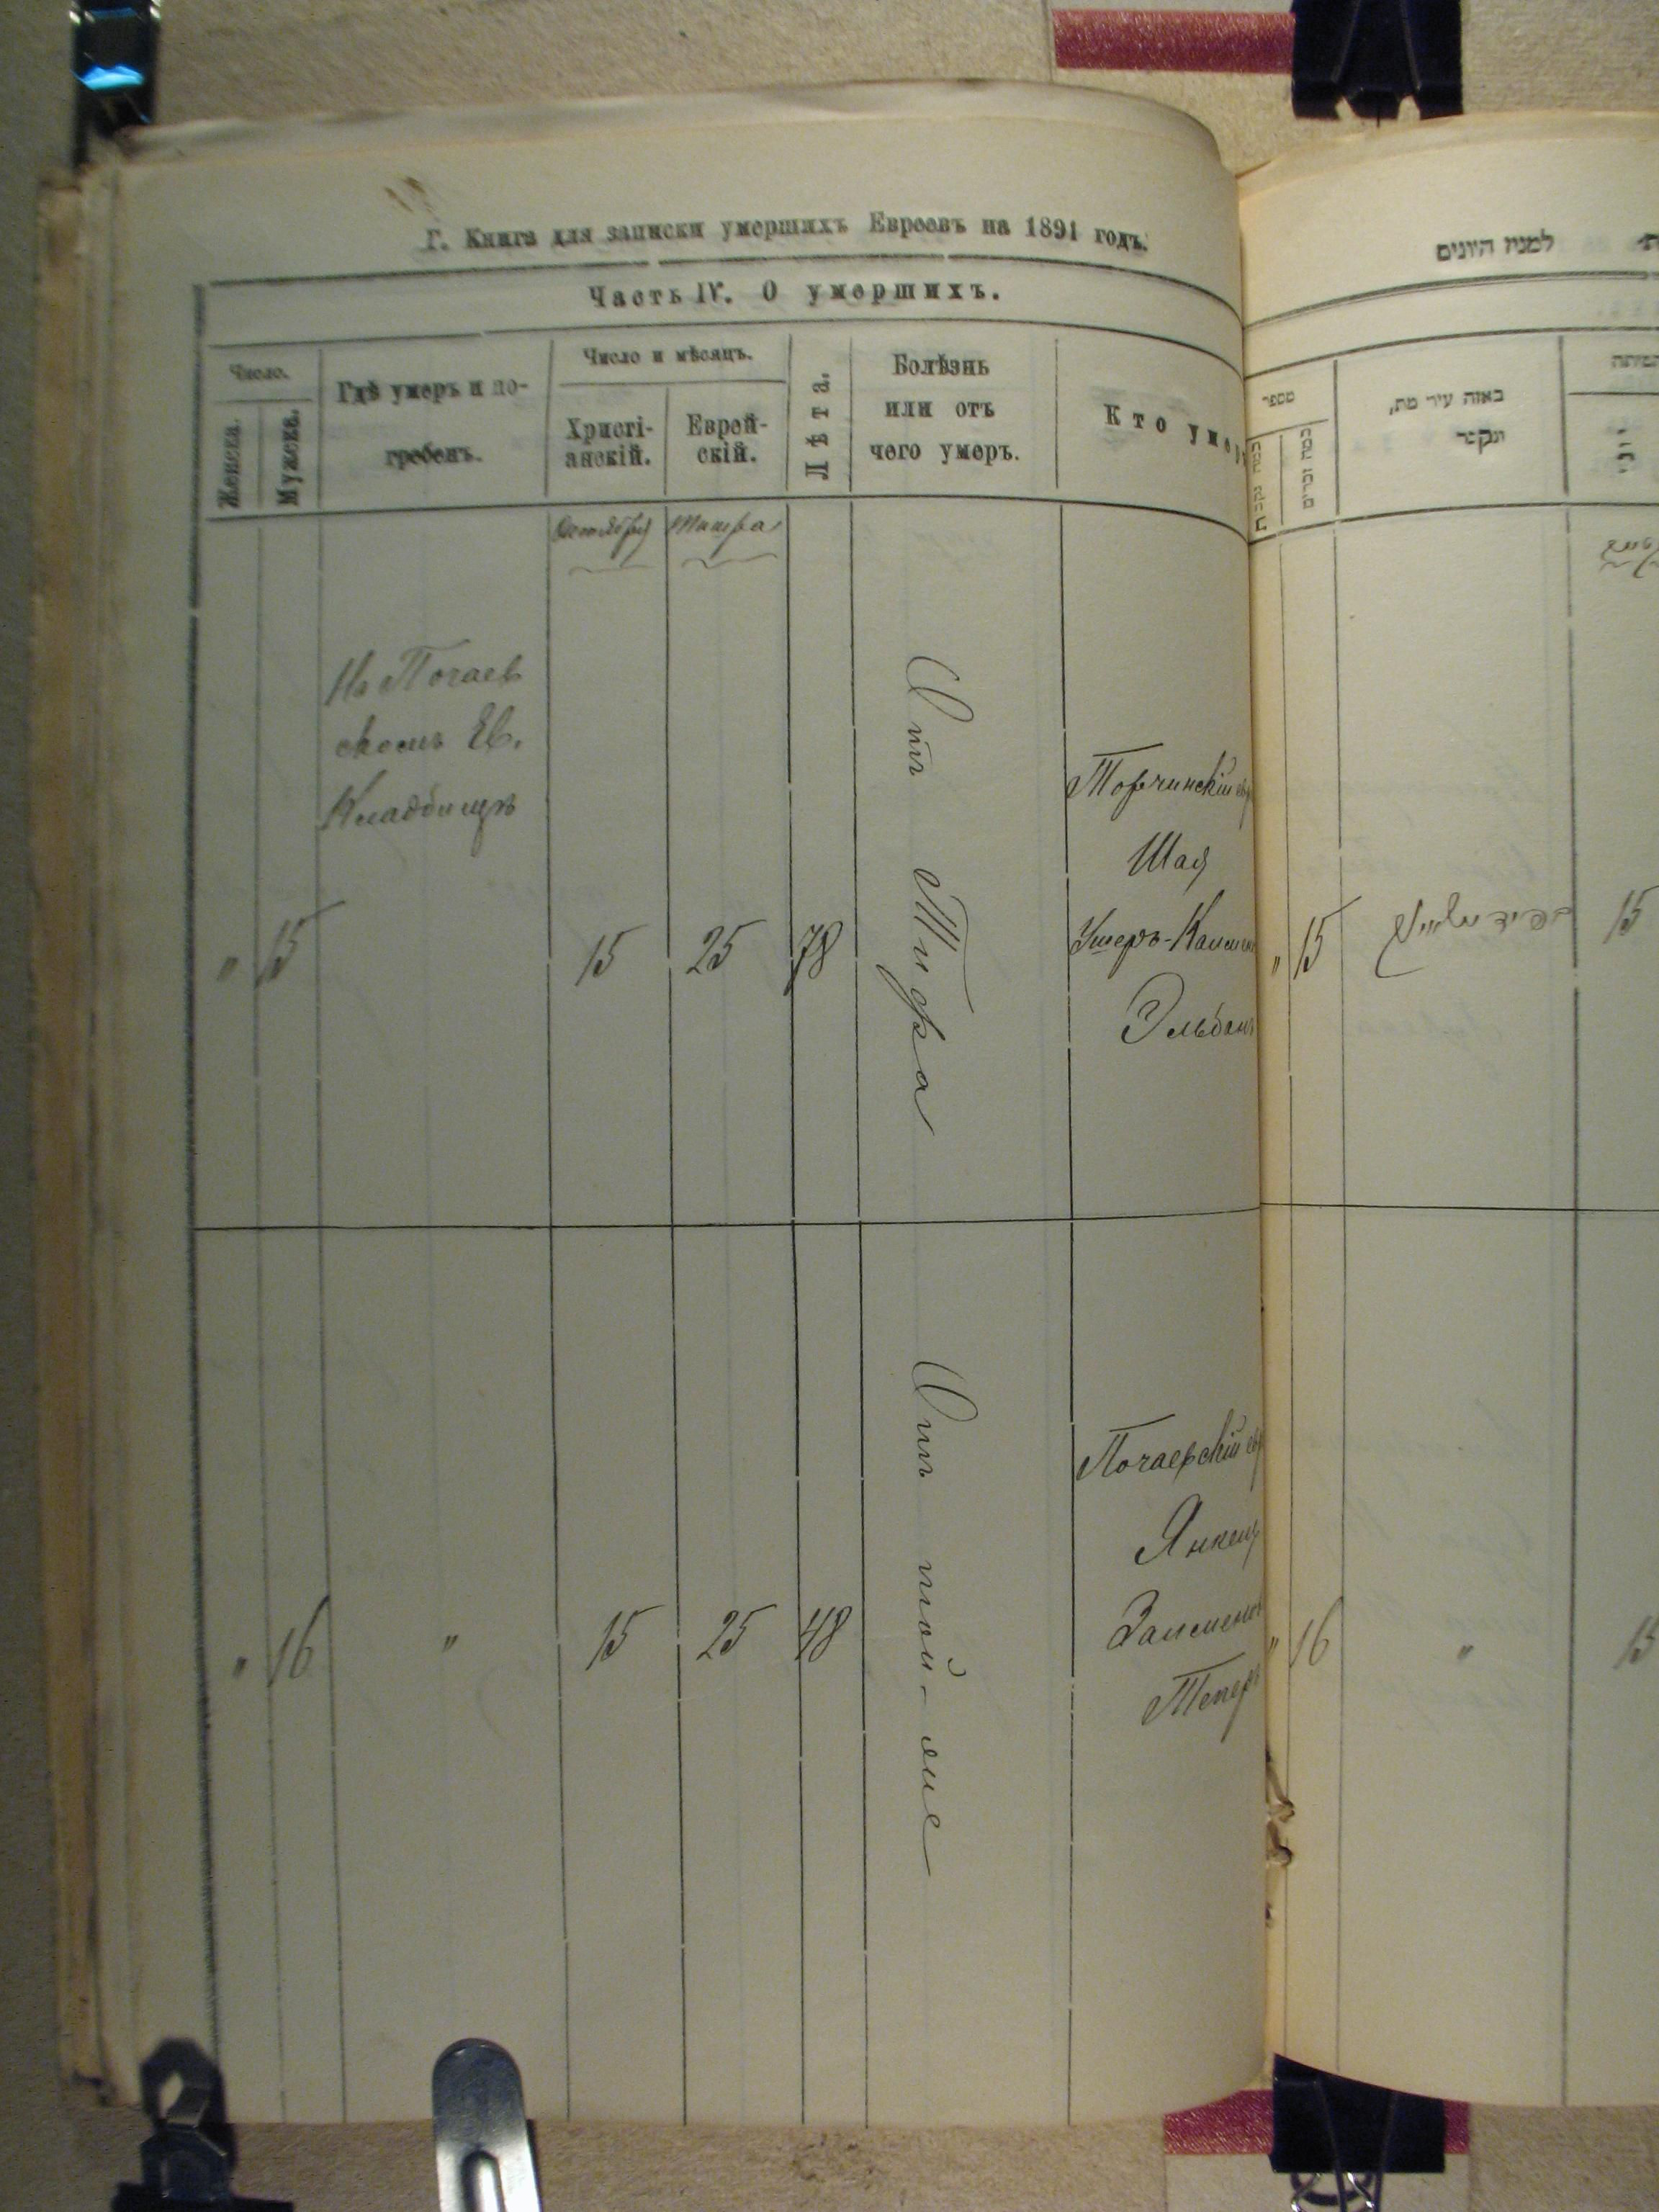 Г. Книга для записки умершихъ Евреевъ на 1891 годъ.
Часть IV. О умершихъ.
Число.
Женска.
Мужеска.
Гдѣ умеръ и по-
гребенъ.
Число и мѣсяцъ.
Христі-
анскій.
Еврей-
скій.
Лѣта.
Болѣзнь
или отъ
чего умеръ.
Кто умер
Октября
Тишра
На Почаев
скомъ Ев.
Кладбищѣ
" 15
15
25
78
Отъ Тифа
Торчинскій ев
Шая
Ушеръ-
Эльбан
" 16
"
15
25
48
Отъ той-же
Почаевскій ев
Янкель
Тепер
למנין היונים
מספר
באזה עיר מת,
ונקבר
" 15
15
" 16
"
15